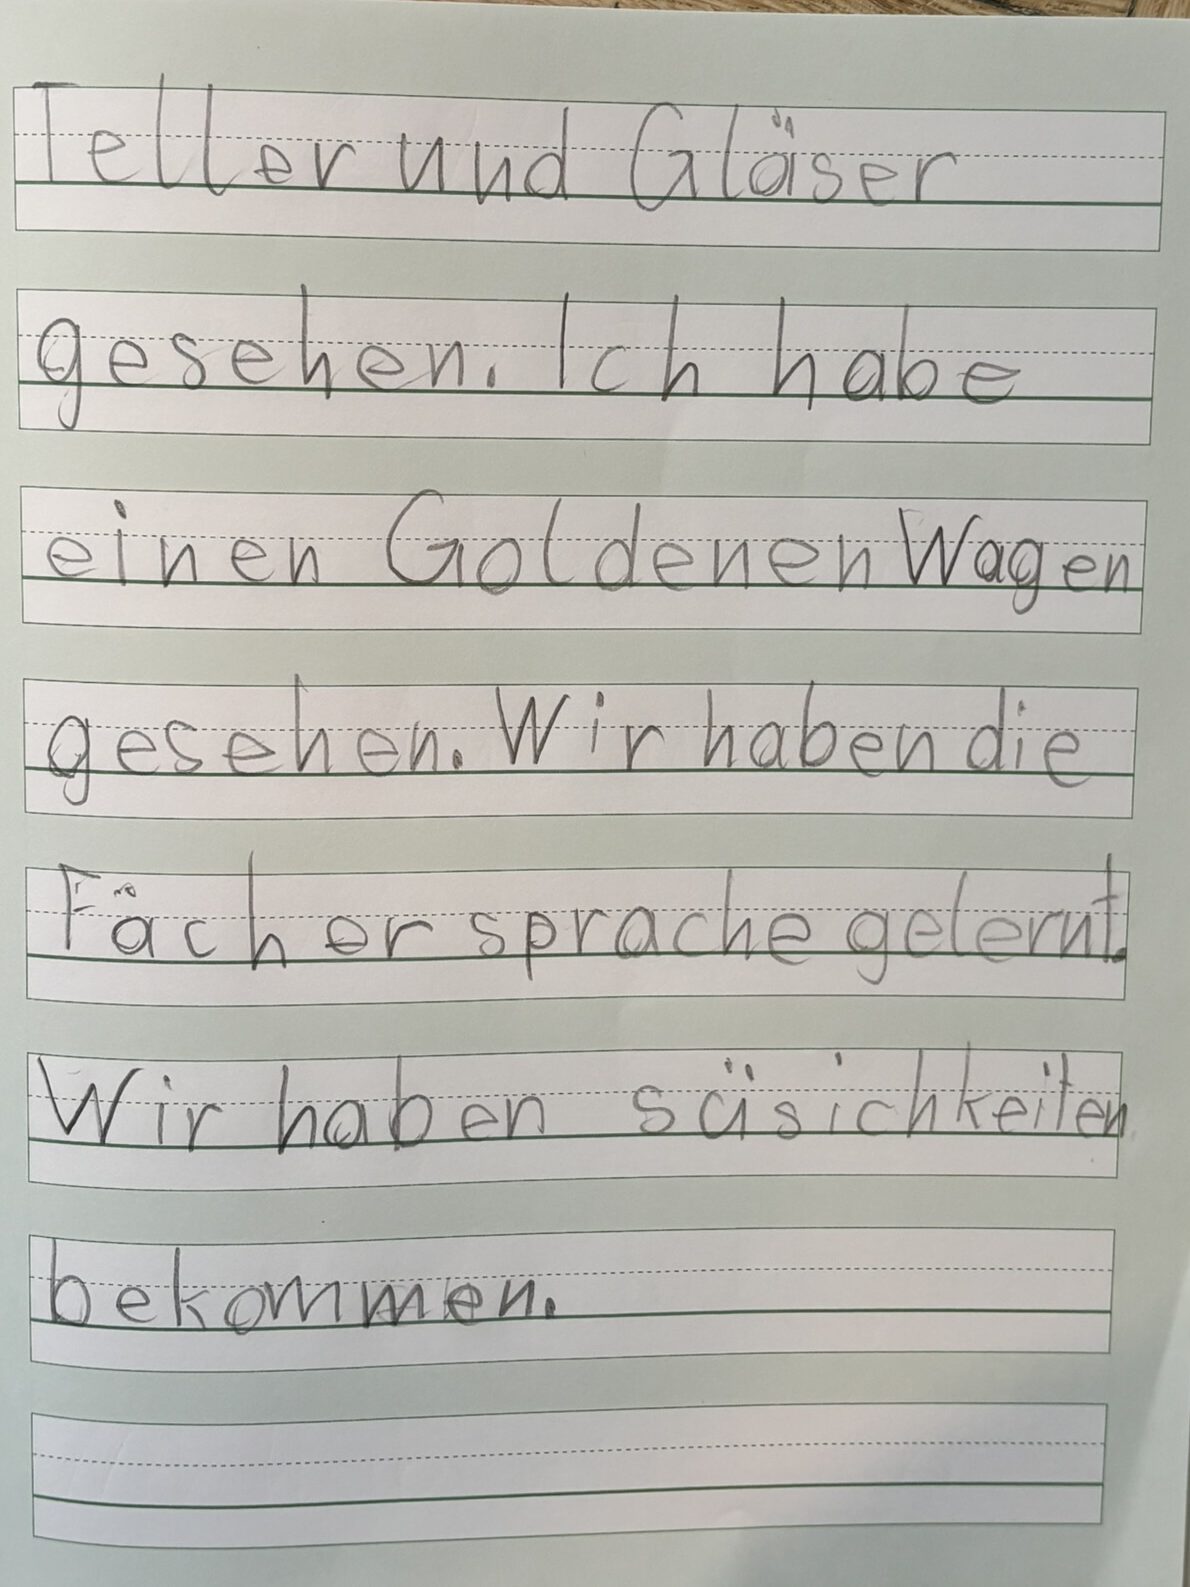 Teller und Gläser
gesehen. Ich habe
einen Goldenen Wagen
gesehen. Wir haben die
Fächer sprache gelernt.
Wir haben süsichkeiten
bekommen.